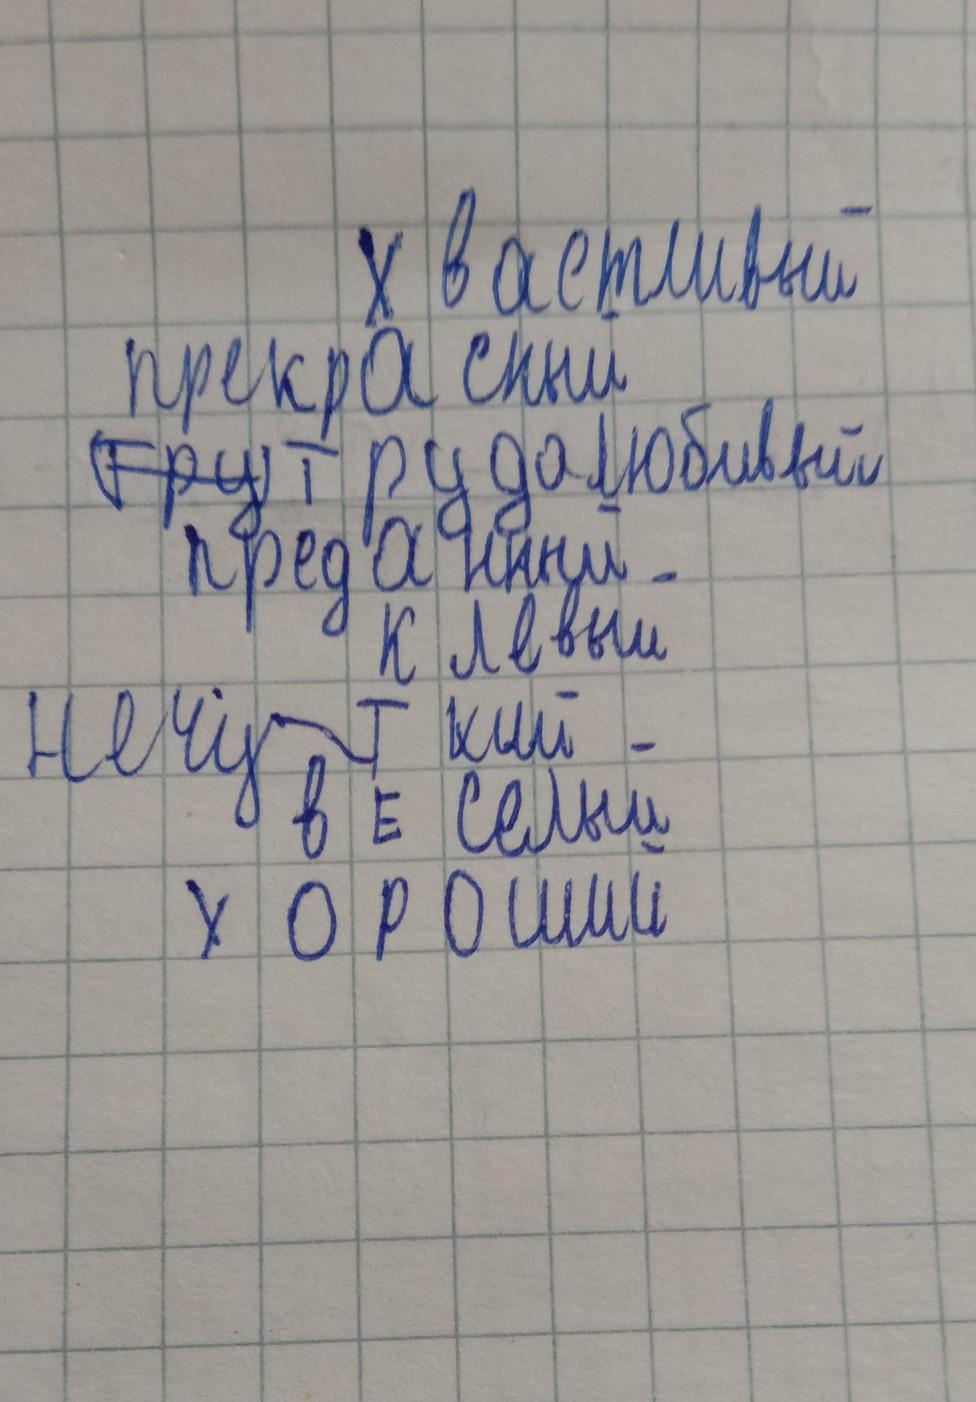 хвастливый
прекрасный
тру трудолюбивый
преданный -
клевый
нечуткий -
вЕселый
хороший